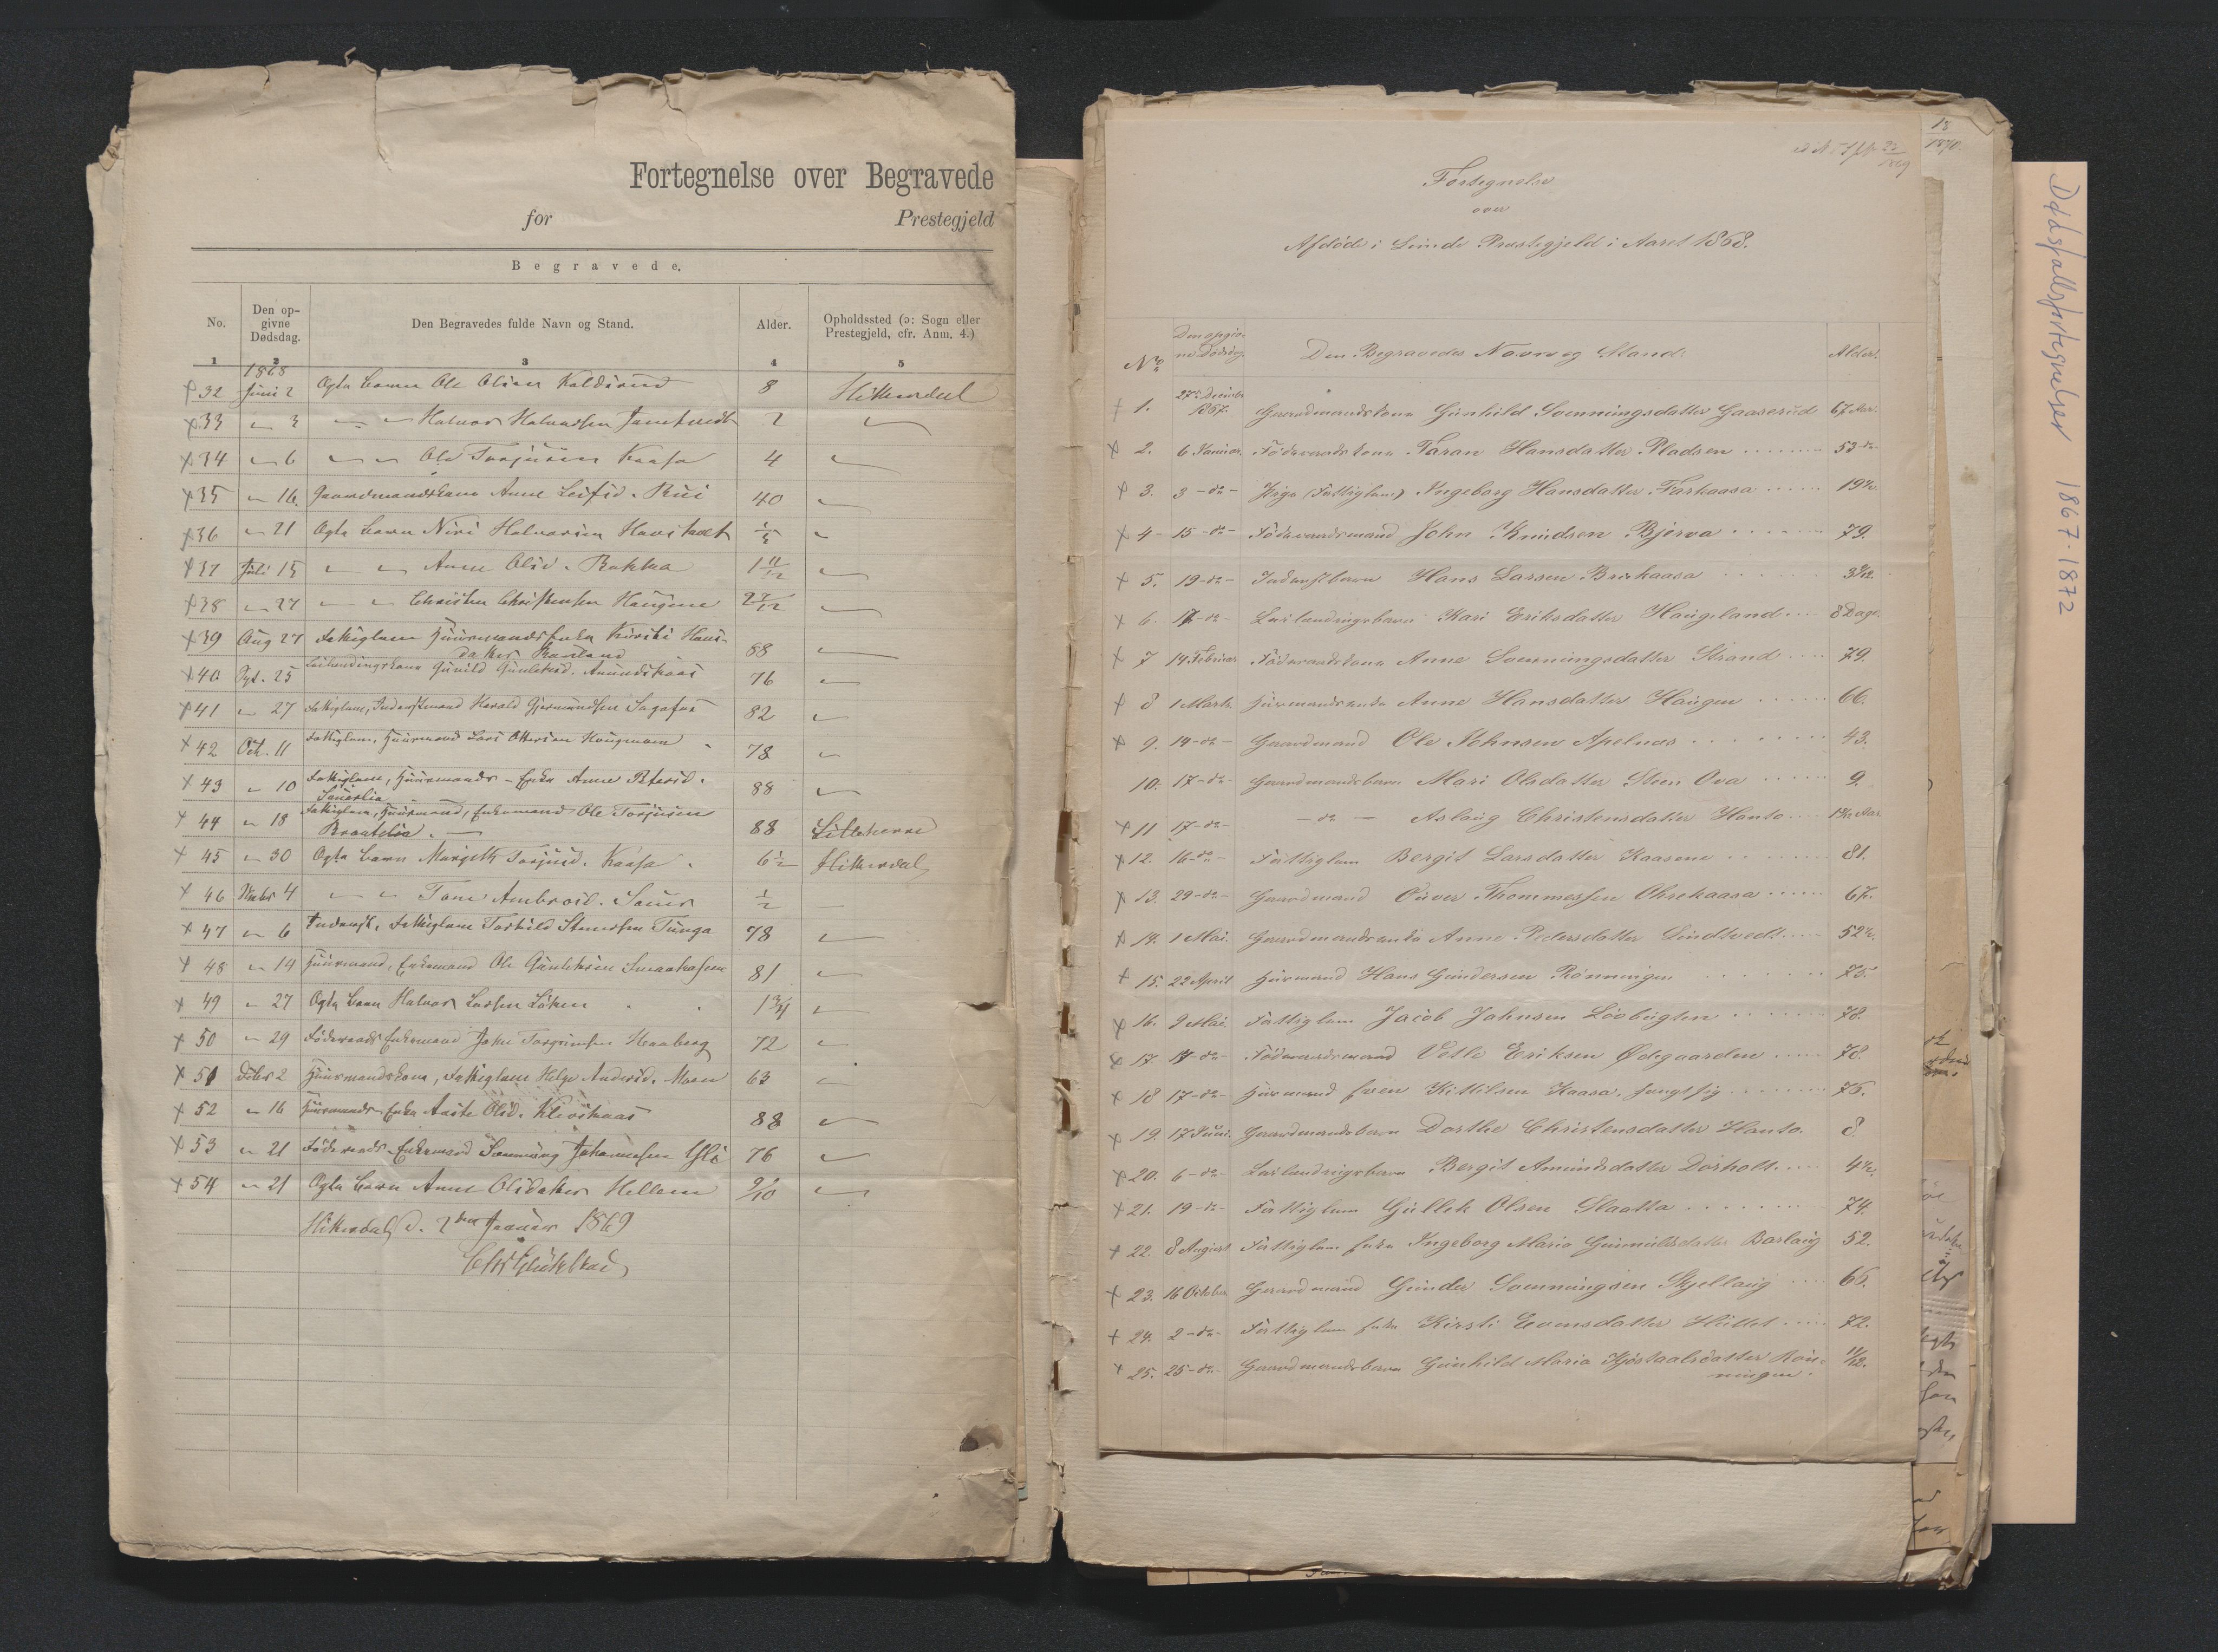 Fortegnelse over Begravede
for Prestegjeld
Begravede.
No. Den opgivne Dødsdag. Den Begravedes fulde Navn og Stand. Alder. Opholdssted (ɔ: Sogn eller Prestegjeld, cfr. Anm. 4.)
1 2 3 4 5
1868
+ 32 Juni 2 Ægte Barn Ole Olsen 8 Hitterdal
+ 33 " 3 " " Halvor Halvorsen 2 "
+ 34 " 6 " " Ole Torjusen Kaasa 4 "
+ 35 " 16 Gaardmandskone Anne Leifsd. Rui 40 "
+ 36 " 21 Ægte Barn Halvorsen "
+ 37 Juli 15 " " Anne Olsd. Bakka 1 11/12 "
+ 38 " 27 " " Christen Christensen Haugene 2 7/12 "
+ 39 Aug 27 Fattiglem Huusmandsenke Kirsti Hans-
datter 88 "
+ 40 Spt. 25 Leilændingskone Gunild Gunleiksd. Amundskaas 76 "
+ 41 " 27 Fattiglem, Inderstmand Harald Gjermundsen Sagafos 82 "
+ 42 Oct. 11 Fattiglem, Huusmand Lars Ottersen Haugmoen 78 "
+ 43 " 10 Fattiglem, Huusmands-Enke Anne Petersd.
Sauerlia 88 "
+ 44 " 18 Fattiglem, Huusmand, Enkemand Ole Torjusen
Braatelia 88 Lilleherred
+ 45 " 30 Ægte Barn Margith Torjusd. Kaasa 6 1/2 Hitterdal
+ 46 Nvbr 4 " " Tone Ambrosd. Sauer 1/2 "
+ 47 " 6 Inderst, Fattiglem Torkild Steensen Tunga 78 "
+ 48 " 14 Huusmand, Enkemand Ole Gunleiksen 81 "
+ 49 " 27 Ægte Barn Halvor Larsen Løken 1 3/4 "
+ 50 " 29 Føderaads Enkemand John Torjusen Haaberg 72 "
+ 51 Dcbr 2 Huusmandskone, Fattiglem Helge Andersd. Moen 63 "
+ 52 " 16 Huusmands Enke Aaste Olsd. Kleivkaas 88 "
+ 53 " 21 Føderaads-Enkemand Svenning Johannesen 76 "
+ 54 " 21 Ægte Barn Anne Olsdatter Hellem 9/10 "
Hitterdal d. 2den Januar 1869
Fortegnelse
over
Afdøde i Lunde Præstegjeld i Aaret 1868.
No Den opgivne Dødsdag Den Begravedes Navn og Stand. Alder.
+ 1. 27de December 1867. Gaardmandskone Gunhild Svenningsdatter Gaaserud 67 Aar.
+ 2. 6 Januar. Føderaadskone Taran Hansdatter Pladsen 53 do
+ 3. 3 -do- Pige (Fattiglem) Ingeborg Hansdatter Farkaasa 19
+ 4 15 -do- Føderaadsmand John Knudsen Bjerva 79.
+ 5. 19 -do- Inderstbarn Hans Larsen Brekaasa
+ 6. 17 -do- Leilændingsbarn Kari Eriksdatter Haugeland 8 Dage.
+ 7 14 Februar Føderaadskone Anne Svenningsdatter Strand 79.
+ 8 1 Marts Husmandsenke Anne Hansdatter Haugen 66.
+ 9. 14 -do- Gaardmand Ole Johnsen Apelnæs 43.
10. 17 -do- Gaardmandsbarn Mari Olsdatter Steen Ova 9.
+ 11 17 -do- - do - Aslaug Christensdatter Hanto
+ 12. 16 -do- Fattiglem Bergit Larsdatter Kaasene 81.
+ 13. 29 -do- Gaardmand Øuver Thommessen Ohrekaasa 67.
+ 14. 1 Mai. Gaardmandsenke Anne Pedersdatter Lindtvedt 52
+ 15. 22 April Husmand Hans Gundersen Rønningen 75.
+ 16. 9 Mai. Fattiglem Jacob Johnsen Løvbugten 78.
+ 17. 14 -do- Føderaadsmand Vetle Eriksen Ødegaarden 78.
+ 18 17 -do- Husmand Sven Kittilsen Kaasa, 75.
+ 19. 17 Juni. Gaardmandsbarn Dorthe Christensdatter Hanto. 8.
+ 20. 6 -do- Leilændingsbarn Bergit Amundsdatter Dorholt
+ 21. 19 -do- Fattiglem Gullek Olsen Slaatta 74.
+ 22. 8 August Fattiglem Enke Ingeborg Maria Gunnulfsdatter Barlaug 52.
+ 23. 16 October Gaardmand Gunder Svenningsen Skjellaug 66.
+ 24. 2 -do- Fattiglem Enke Kirsti Evensdatter Hullet 72.
+ 25. 25 -do- Gaardmandsbarn Gunhild Maria Kjøstaalsdatter Røn-
ningen. 11/12.
18
1870.
Dødsfallsfortegnelser 1867-1872